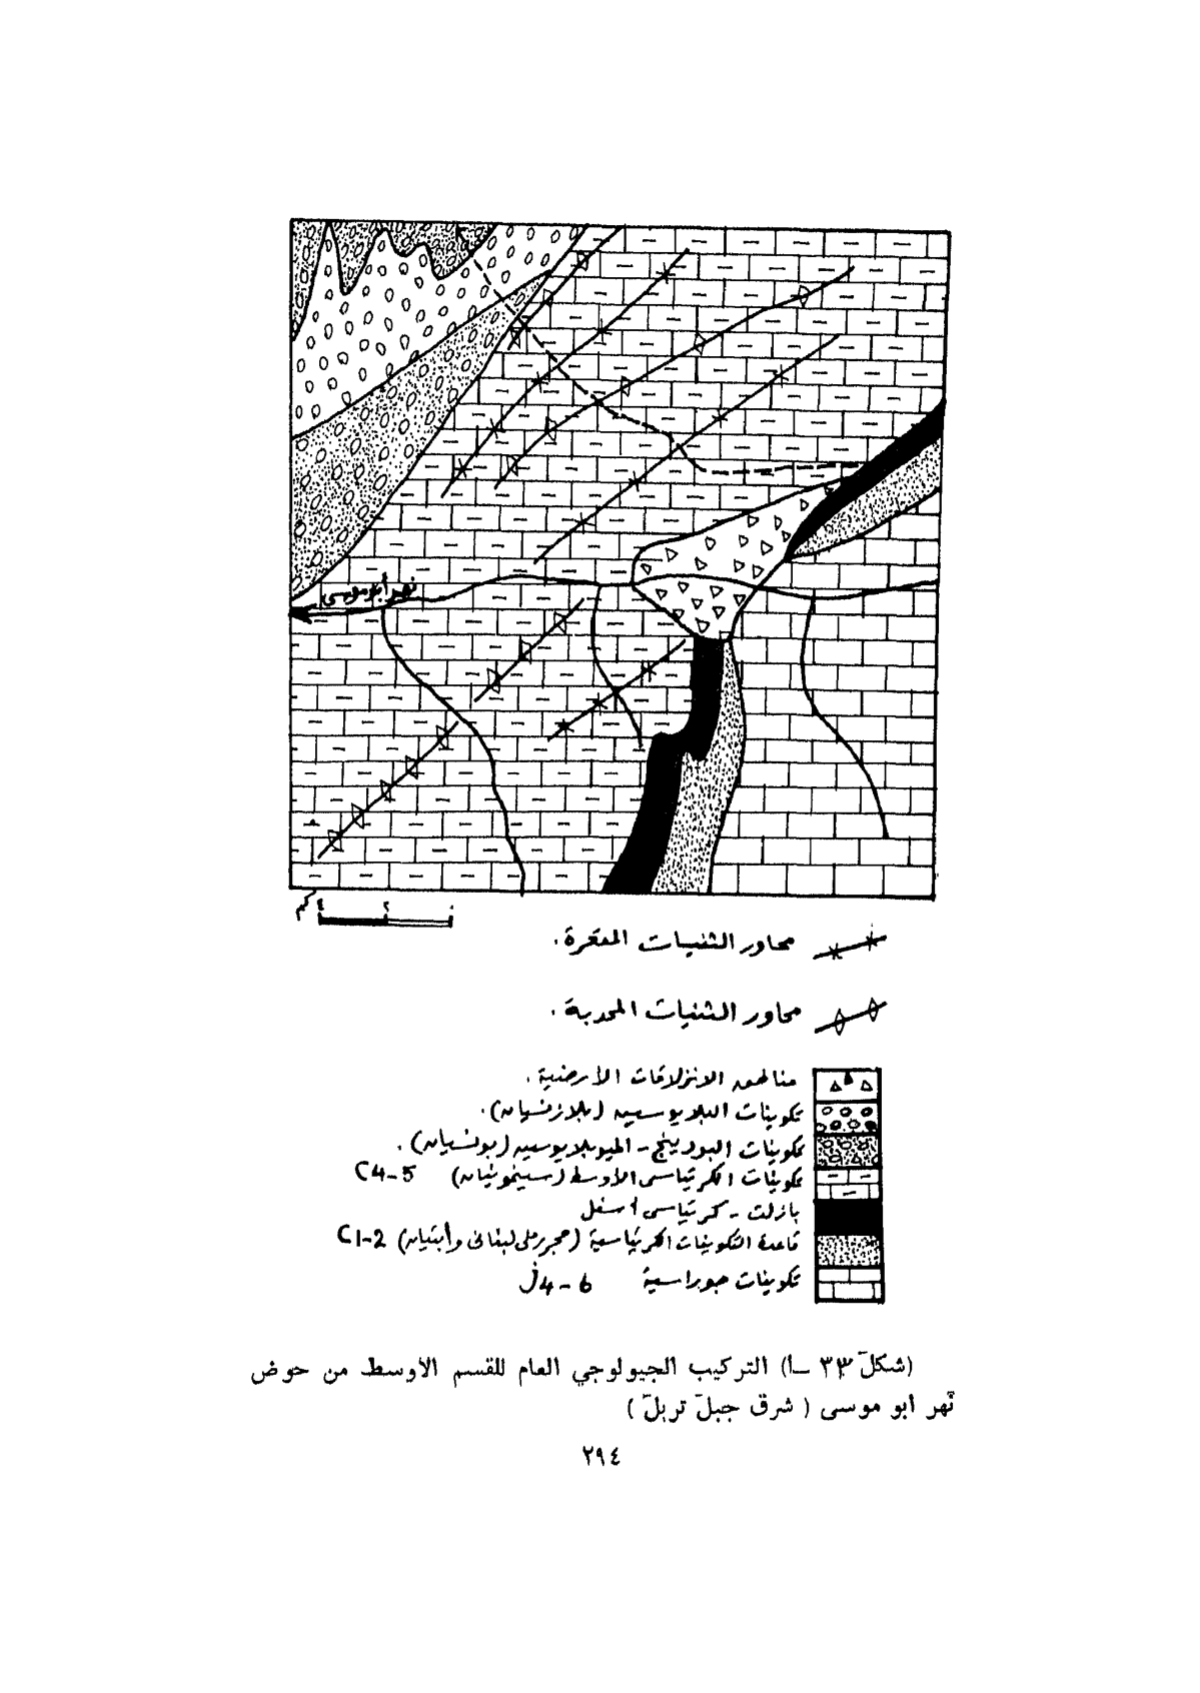 نهر أبو موسى
كم ٤ ٢ ٠
محاور الثنيات المقعرة .
محاور الثنيات المحدبة .
مناطق الانزلاقات الأرضية .
تكوينات البلايوسين (بلازنسيان) .
تكوينات البودينج - الميوبلايوسين (بونسيان) .
تكوينات الكرتياسي الأوسط (سينومونيان) C4-5
بازلت - كرتياسي أسفل
قاعدة التكوينات الكرتياسية (حجر رملي لبناني وأبتيان) C1-2
تكوينات جوراسية J4-6
(شكل ٣٣ ـ أ) التركيب الجيولوجي العام للقسم الأوسط من حوض
نهر ابو موسى ( شرق جبل تربل )
٢٩٤